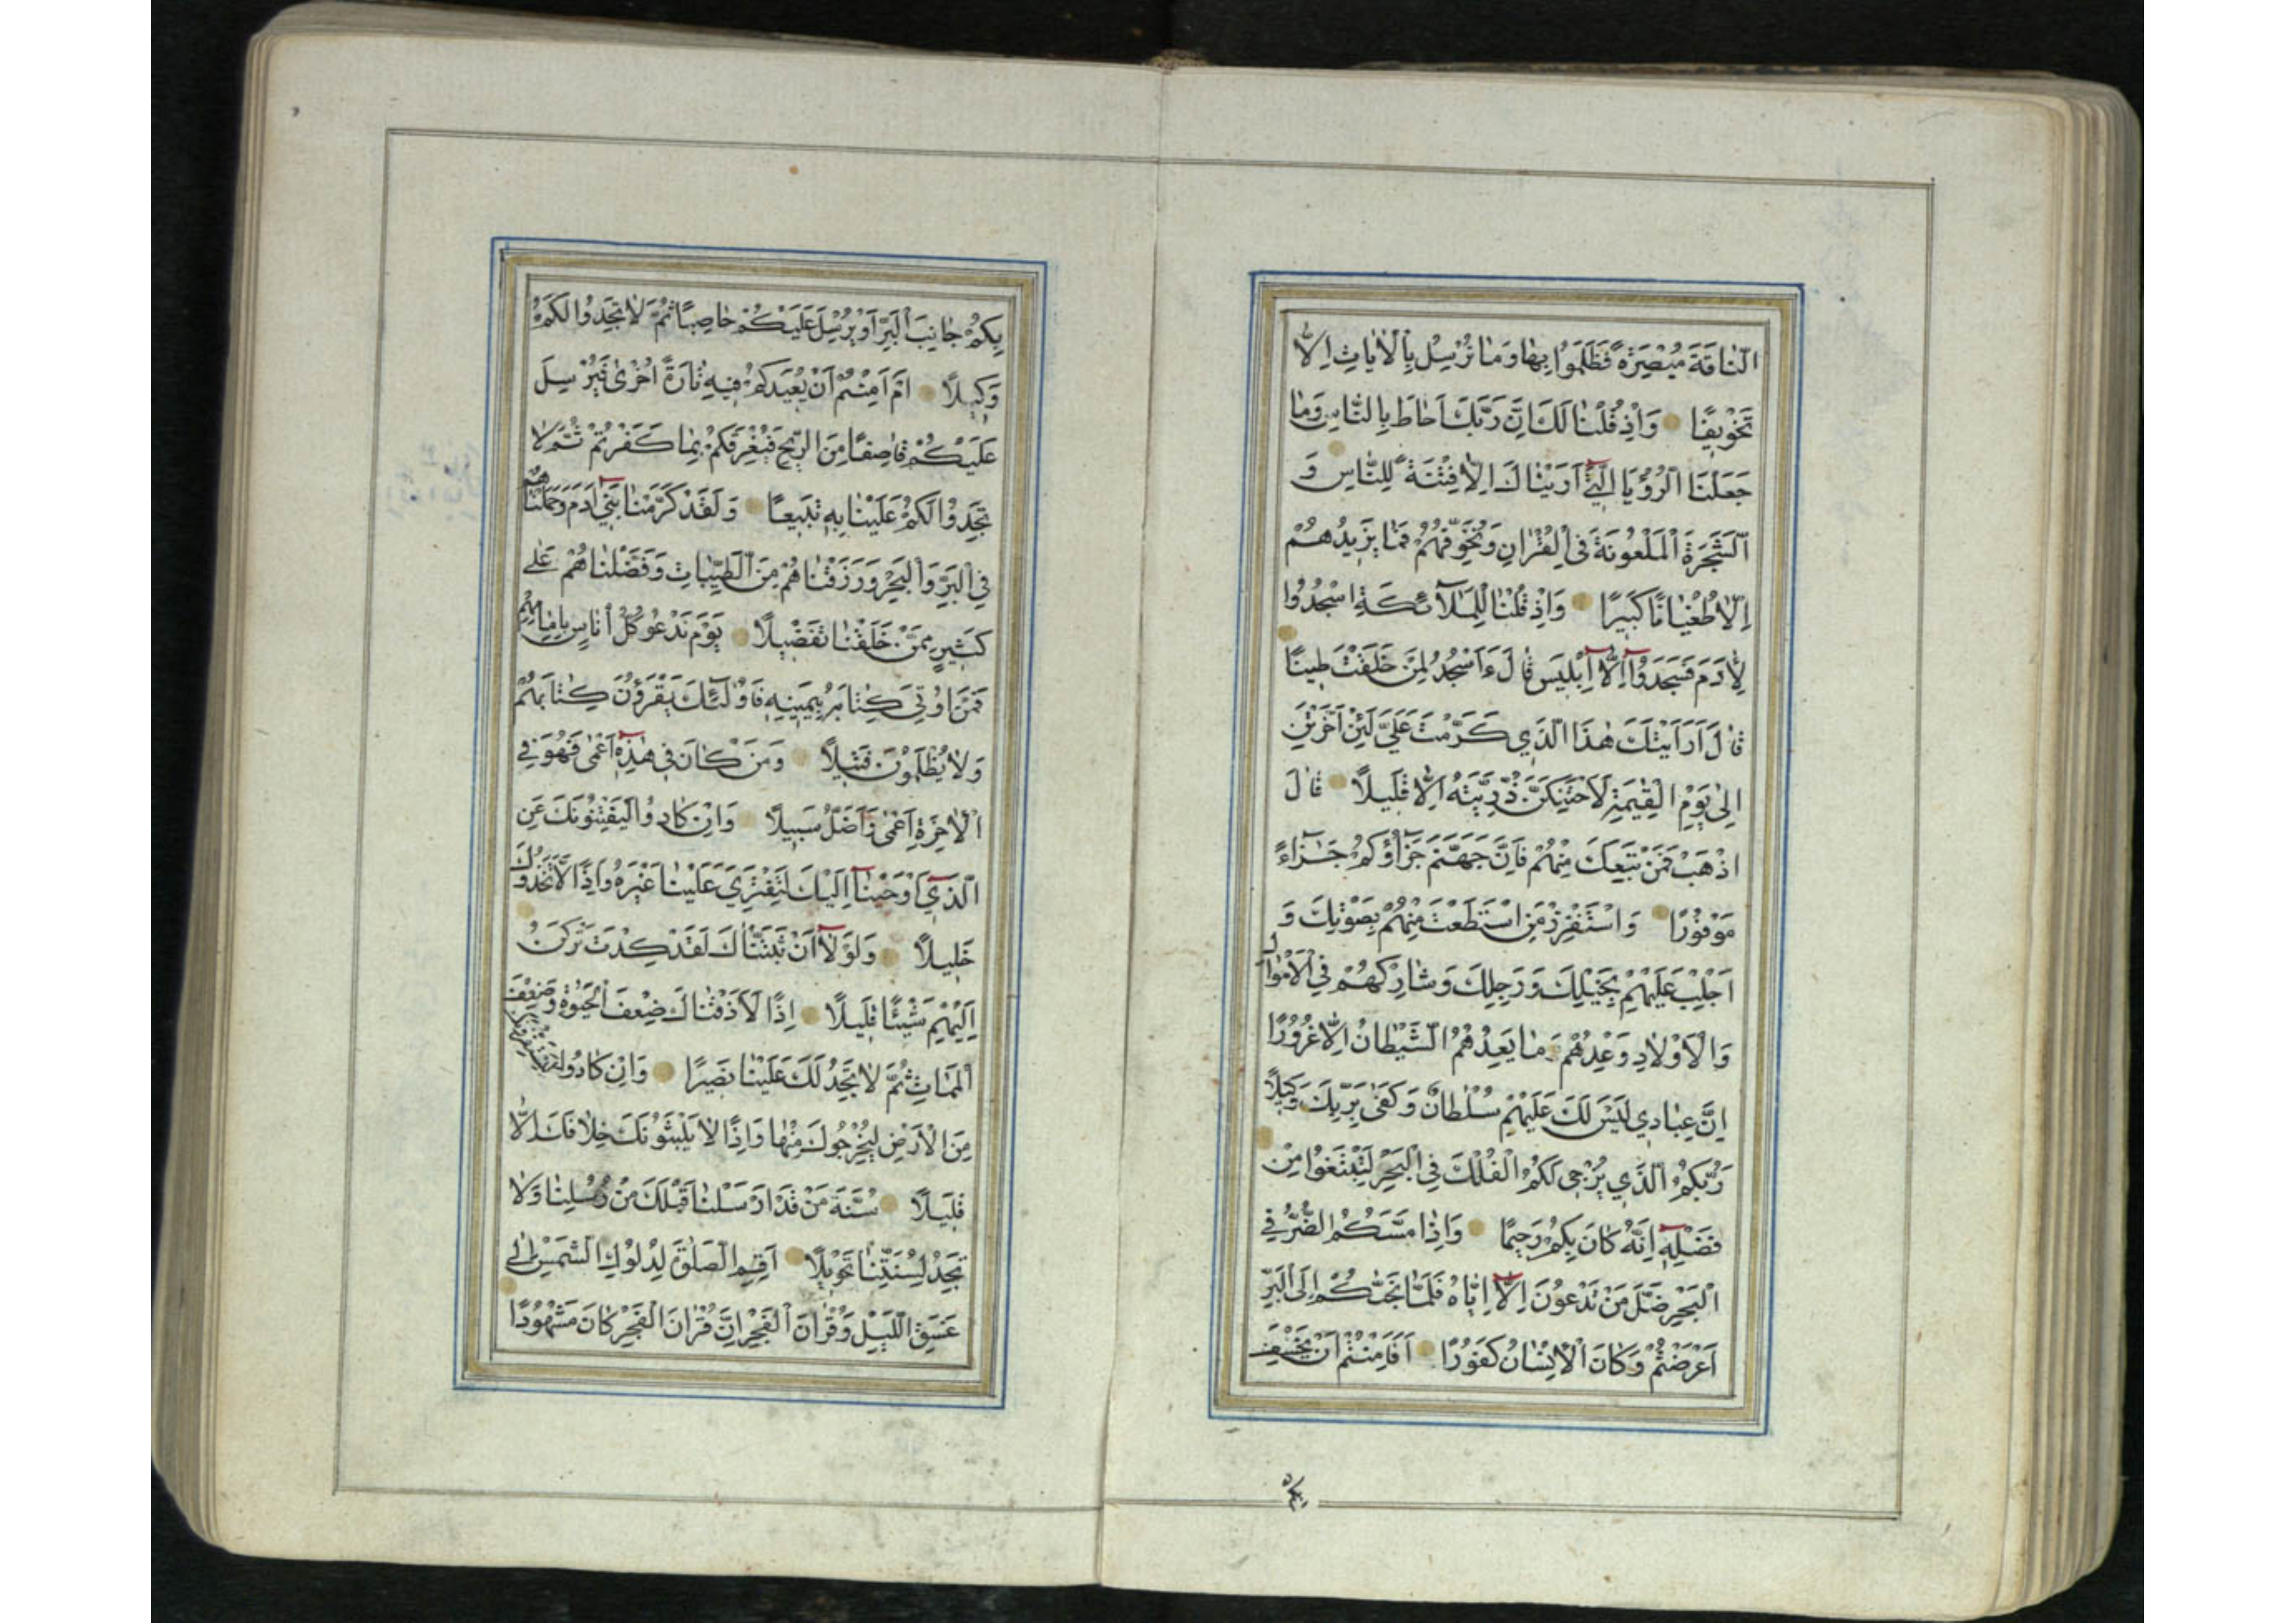 النَّاقَةَ مُبْصِرَةً فَظَلَمُوا بِهَا وَمَا نُرْسِلُ بِالْاٰيَاتِ اِلَّا
تَخْوِيفًا وَاِذْ قُلْنَا لَكَ اِنَّ رَبَّكَ اَحَاطَ بِالنَّاسِ وَمَا
جَعَلْنَا الرُّؤْيَا الَّتِي اَرَيْنَاكَ اِلَّا فِتْنَةً لِلنَّاسِ وَ
الشَّجَرَةَ الْمَلْعُونَةَ فِي الْقُرْاٰنِ وَنُخَوِّفُهُمْ فَمَا يَزِيدُهُمْ
اِلَّا طُغْيَانًا كَبِيرًا وَاِذْ قُلْنَا لِلْمَلَآئِكَةِ اسْجُدُوا
لِاٰدَمَ فَسَجَدُوا اِلَّا اِبْلِيسَ قَالَ ءَاَسْجُدُ لِمَنْ خَلَقْتَ طِينًا
قَالَ اَرَاَيْتَكَ هٰذَا الَّذِي كَرَّمْتَ عَلَيَّ لَئِنْ اَخَّرْتَنِ
اِلٰى يَوْمِ الْقِيٰمَةِ لَاَحْتَنِكَنَّ ذُرِّيَّتَهُ اِلَّا قَلِيلًا قَالَ
اذْهَبْ فَمَنْ تَبِعَكَ مِنْهُمْ فَاِنَّ جَهَنَّمَ جَزَآؤُكُمْ جَزَآءً
مَوْفُورًا وَاسْتَفْزِزْ مَنِ اسْتَطَعْتَ مِنْهُمْ بِصَوْتِكَ وَ
اَجْلِبْ عَلَيْهِمْ بِخَيْلِكَ وَرَجِلِكَ وَشَارِكْهُمْ فِي الْاَمْوَالِ
وَالْاَوْلَادِ وَعِدْهُمْ وَمَا يَعِدُهُمُ الشَّيْطَانُ اِلَّا غُرُورًا
اِنَّ عِبَادِي لَيْسَ لَكَ عَلَيْهِمْ سُلْطَانٌ وَكَفٰى بِرَبِّكَ وَكِيلًا
رَبُّكُمُ الَّذِي يُزْجِي لَكُمُ الْفُلْكَ فِي الْبَحْرِ لِتَبْتَغُوا مِنْ
فَضْلِهِ اِنَّهُ كَانَ بِكُمْ رَحِيمًا وَاِذَا مَسَّكُمُ الضُّرُّ فِي
الْبَحْرِ ضَلَّ مَنْ تَدْعُونَ اِلَّا اِيَّاهُ فَلَمَّا نَجّٰكُمْ اِلَى الْبَرِّ
اَعْرَضْتُمْ وَكَانَ الْاِنْسَانُ كَفُورًا اَفَاَمِنْتُمْ اَنْ يَخْسِفَ
بِكُمْ جَانِبَ الْبَرِّ اَوْ يُرْسِلَ عَلَيْكُمْ حَاصِبًا ثُمَّ لَا تَجِدُوا لَكُمْ
وَكِيلًا اَمْ اَمِنْتُمْ اَنْ يُعِيدَكُمْ فِيهِ تَارَةً اُخْرٰى فَيُرْسِلَ
عَلَيْكُمْ قَاصِفًا مِنَ الرِّيحِ فَيُغْرِقَكُمْ بِمَا كَفَرْتُمْ ثُمَّ لَا
تَجِدُوا لَكُمْ عَلَيْنَا بِهِ تَبِيعًا وَلَقَدْ كَرَّمْنَا بَنِي اٰدَمَ وَحَمَلْنَاهُمْ
فِي الْبَرِّ وَالْبَحْرِ وَرَزَقْنَاهُمْ مِنَ الطَّيِّبَاتِ وَفَضَّلْنَاهُمْ عَلٰى
كَثِيرٍ مِمَّنْ خَلَقْنَا تَفْضِيلًا يَوْمَ نَدْعُو كُلَّ اُنَاسٍ بِاِمَامِهِمْ
فَمَنْ اُوتِيَ كِتَابَهُ بِيَمِينِهِ فَاُولٰٓئِكَ يَقْرَؤُنَ كِتَابَهُمْ
وَلَا يُظْلَمُونَ فَتِيلًا وَمَنْ كَانَ فِي هٰذِهِ اَعْمٰى فَهُوَ فِي
الْاٰخِرَةِ اَعْمٰى وَاَضَلُّ سَبِيلًا وَاِنْ كَادُوا لَيَفْتِنُونَكَ عَنِ
الَّذِي اَوْحَيْنَا اِلَيْكَ لِتَفْتَرِيَ عَلَيْنَا غَيْرَهُ وَاِذًا لَاتَّخَذُوكَ
خَلِيلًا وَلَوْلَا اَنْ ثَبَّتْنَاكَ لَقَدْ كِدْتَ تَرْكَنُ
اِلَيْهِمْ شَيْئًا قَلِيلًا اِذًا لَاَذَقْنَاكَ ضِعْفَ الْحَيٰوةِ وَضِعْفَ
الْمَمَاتِ ثُمَّ لَا تَجِدُ لَكَ عَلَيْنَا نَصِيرًا وَاِنْ كَادُوا لَيَسْتَفِزُّونَكَ
مِنَ الْاَرْضِ لِيُخْرِجُوكَ مِنْهَا وَاِذًا لَا يَلْبَثُونَ خِلَافَكَ اِلَّا
قَلِيلًا سُنَّةَ مَنْ قَدْ اَرْسَلْنَا قَبْلَكَ مِنْ رُسُلِنَا وَلَا
تَجِدُ لِسُنَّتِنَا تَحْوِيلًا اَقِمِ الصَّلٰوةَ لِدُلُوكِ الشَّمْسِ اِلٰى
غَسَقِ اللَّيْلِ وَقُرْاٰنَ الْفَجْرِ اِنَّ قُرْاٰنَ الْفَجْرِ كَانَ مَشْهُودًا